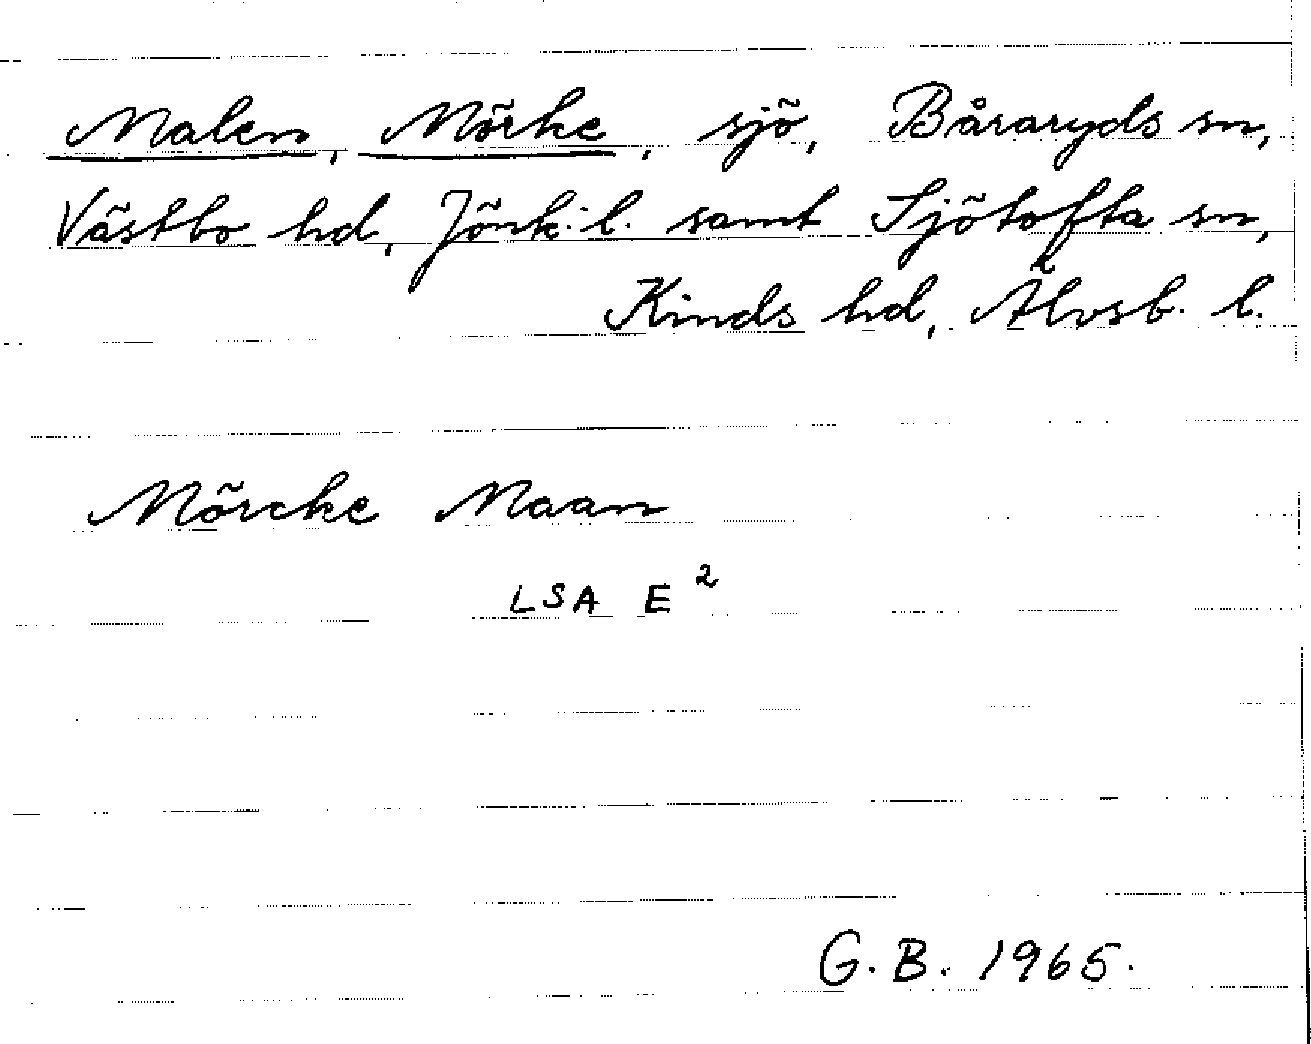 Malen, Mörke, sjö, Båraryds sn,
Västbo hd, Jönk. l. samt Sjötofta sn,
Kinds hd, Älvsb. l.
Mörcke Maan
LSA E²
G. B. 1965.